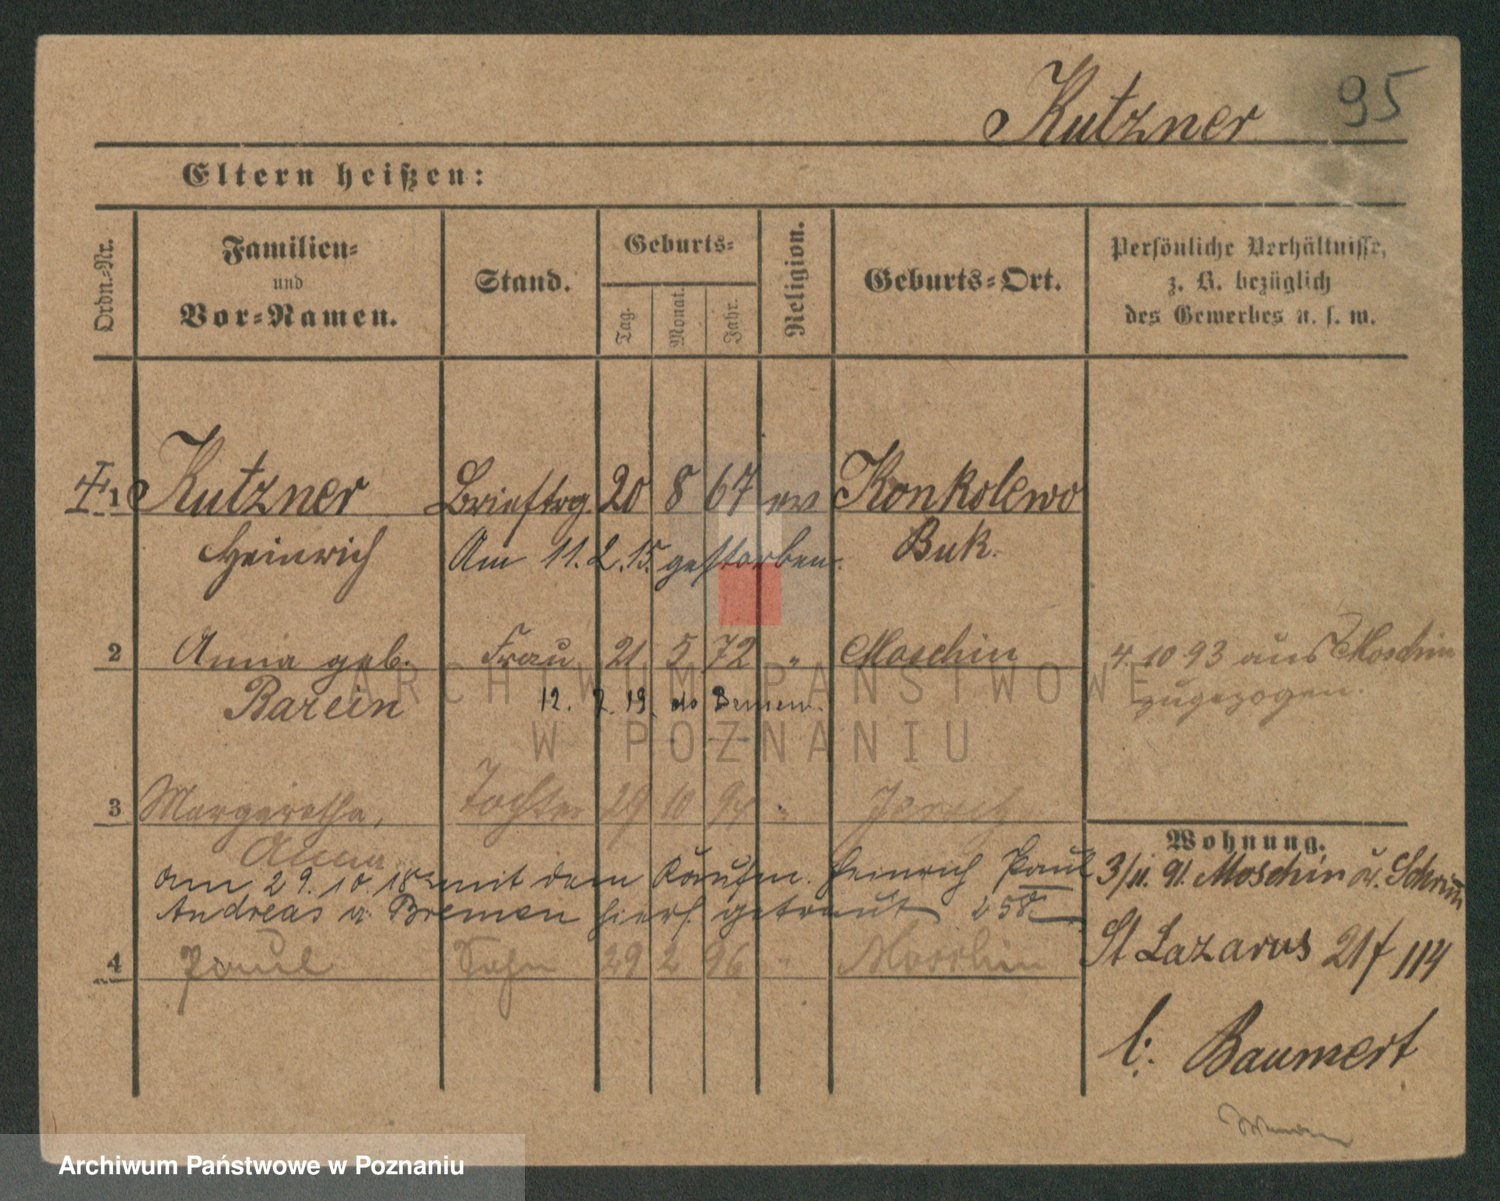 Kutzner 95
Eltern heißen:
Ordn.-Nr.
Familien-
und
Vor-Namen.
Stand.
Geburts-
Tag.
Monat.
Jahr.
Religion.
Geburts-Ort.
Persönliche Verhältnisse,
z. B. bezüglich
des Gewerbes u. s. w.
1 Kutzner Brieftrg. 20 8 67 ev Konkolewo
Heinrich Am 11. 2. 15. gestorben. Buk.
2 Anna geb. Frau 21 5 72 " Moschin 4. 10 93 aus Moschin
Barein 12. 7. 19. Bremen. zugezogen.
3 Margaretha, Tochter 29 10 94 " Jersitz
Anna
am 29. 10. 18 mit dem Kaufm. Heinrich Paul
Andreas a. Bremen hiers. getraut 258.
4 Paul Sohn 29 2 96 " Moschin
Wohnung.
3/11. 91. Moschin Kr. Schrimm
St Lazarus 21f 114
b: Baumert
ARCHIWUM PAŃSTWOWE
W POZNANIU
Archiwum Państwowe w Poznaniu